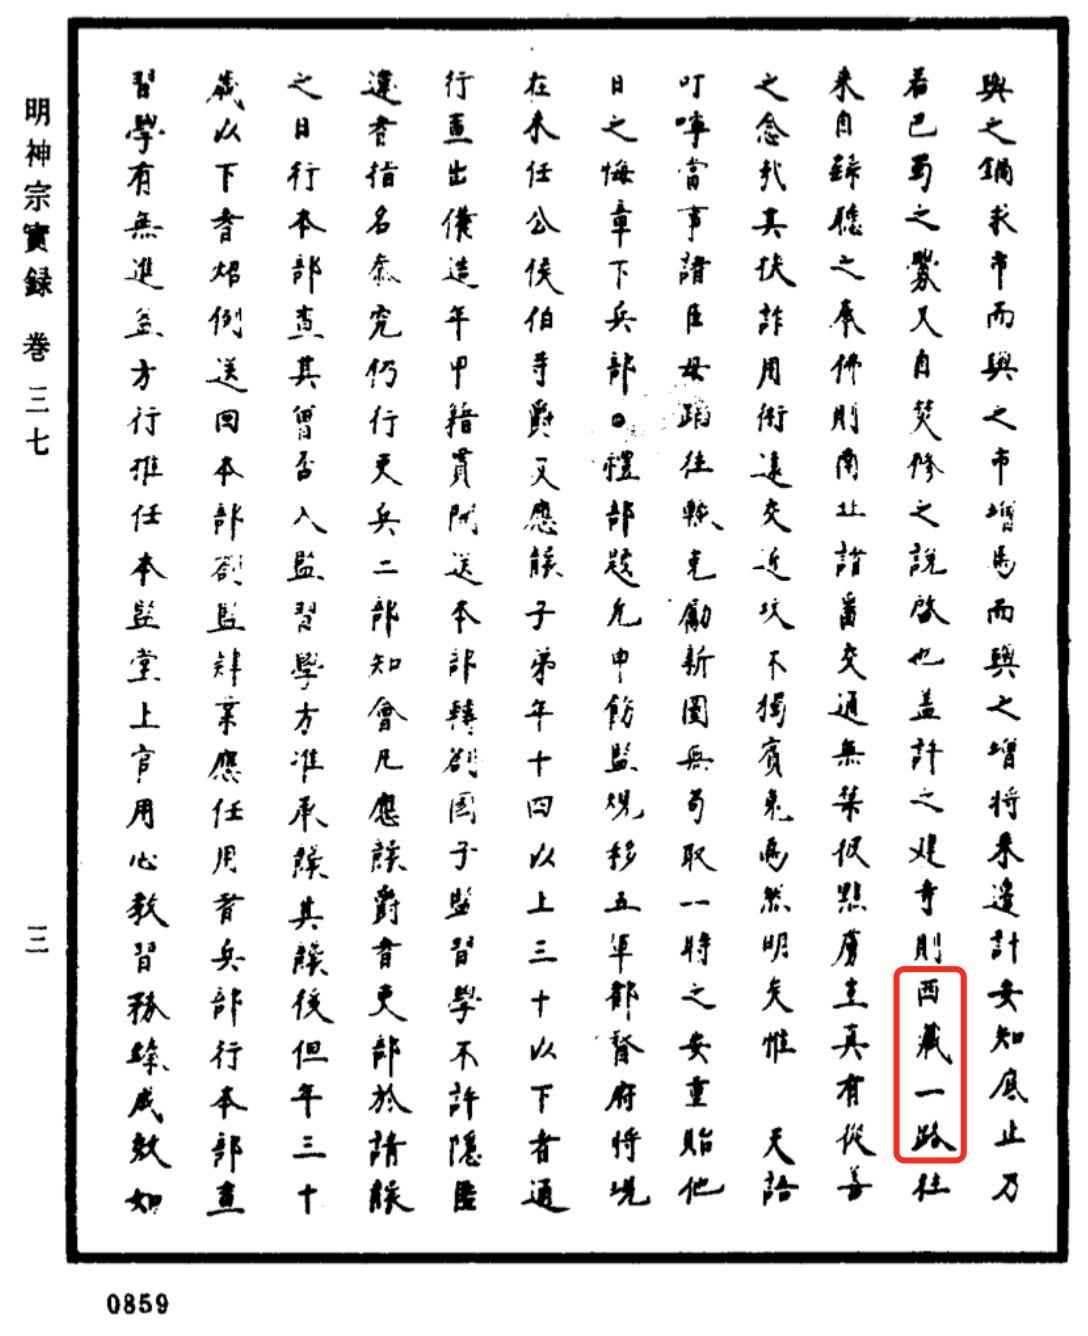 與之鍋求市而與之市增馬而與之增將来邊計安知底止乃
若巴蜀之釁又自焚修之說啟也盖許之建寺則西藏一路往
来自歸聽之奉佛則南北諸番交通無禁伋黠虜主真有從善
之念我其挟詐用術遠交近攻不獨賓兔為然明矣惟 天語
叮嚀當事諸臣毋蹈往轍克勵新圖無苟取一時之安重貽他
日之悔章下兵部○禮部題允申飭監規移五軍都督府將見
在未任公侯伯等爵又應襲子弟年十四以上三十以下者通
行查出備造年甲籍貫開送本部轉劄國子監習學不許隱匿
違者指名叅究仍行吏兵二部知會凡應襲爵者吏部於請襲
之日行本部查其曾否入監習學方准承襲其襲後但年三十
歲以下者炤例送回本部劄監肄業應任用者兵部行本部查
習學有無進益方行推任本監堂上官用心教習務錄成效如
明神宗實録 卷三七
三
0859